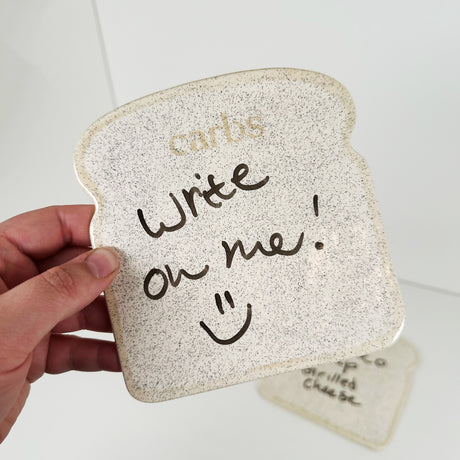 carbs
Write
on me!
grilled
cheese